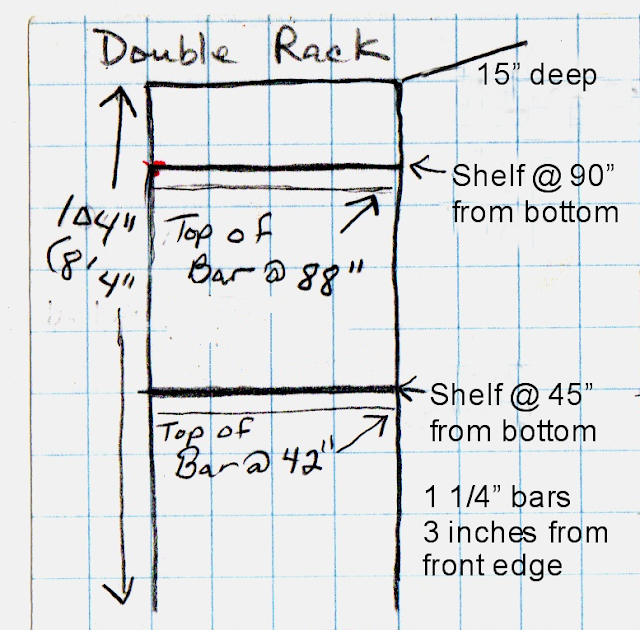 Double Rack
15” deep
Shelf @ 90”
from bottom
104"
(8' 4"
Top of
Bar @ 88"
Shelf @ 45”
from bottom
Top of
Bar @ 42"
1 1/4” bars
3 inches from
front edge